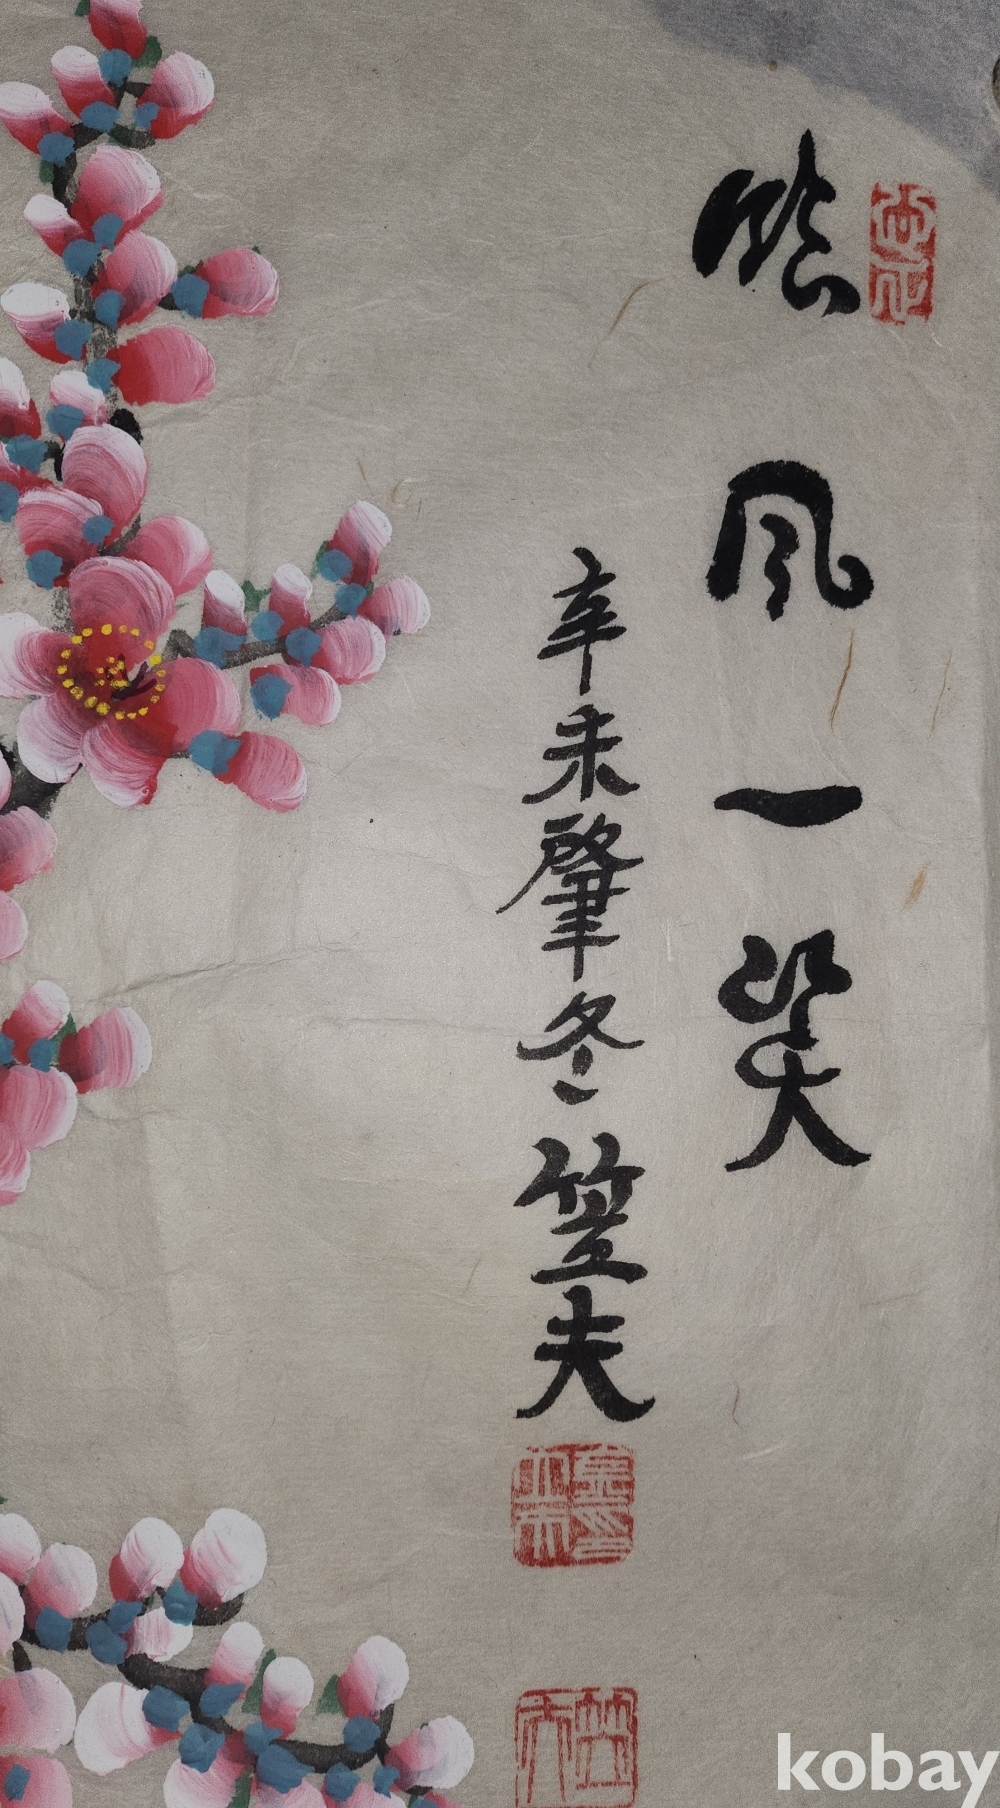 臨風一笑
辛未肇冬笠夫
kobay